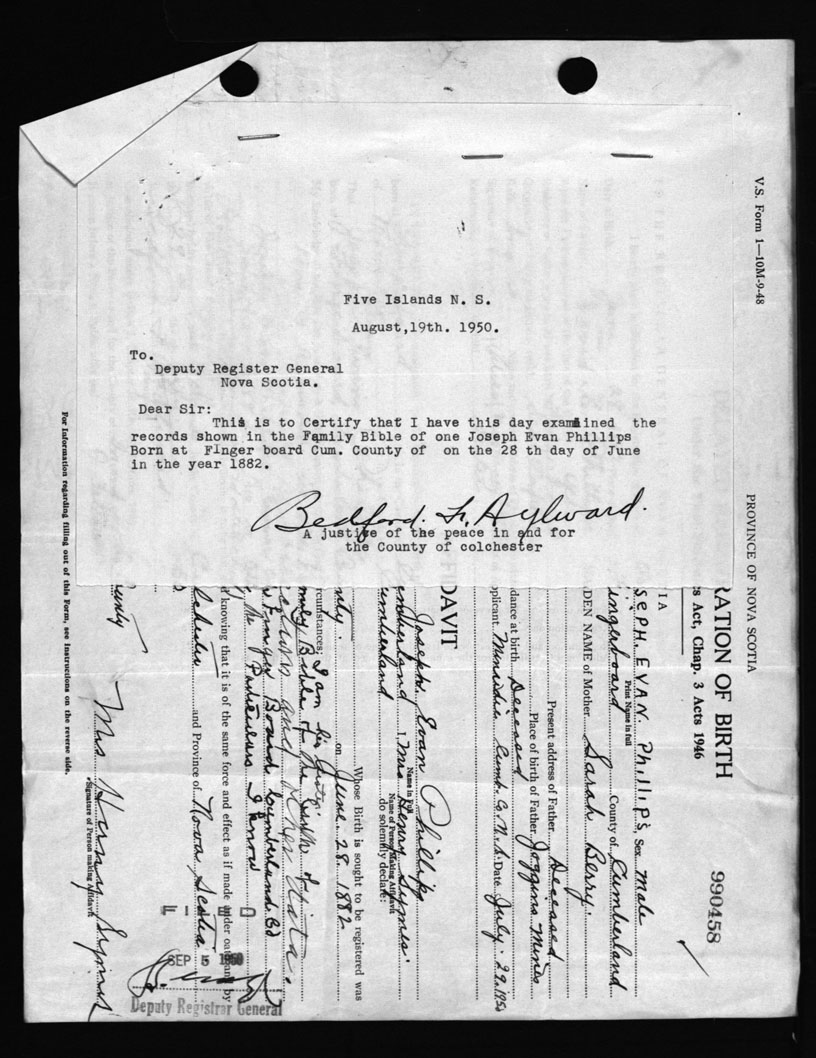 Five Islands N. S.
August,19th. 1950.
To.
Deputy Register General
Nova Scotia.
Dear Sir:
This is to Certify that I have this day examined the
records shown in the Family Bible of one Joseph Evan Phillips
Born at FInger board Cum. County of on the 28 th day of June
in the year 1882.
Bedford. F. Aylward.
A justice of the peace in and for
the County of colchester
V.S. Form 1—10M-9-48
PROVINCE OF NOVA SCOTIA
RATION OF BIRTH
s Act, Chap. 3 Acts 1946
990458
SEPH. EVAN. Phillips, Sex male
Print Name in full
ingerboard County of Cumberland
DEN NAME of Mother Sarah Berry.
Present address of Father Deceased
Place of birth of Father Joggins Mines
dance at birth Deceased
pplicant Minudie Cumb. Co. N. S. Date July. 29. 1950
DAVIT
Joseph Evan Phillips
Name in Full
umberland I, Mrs Henry Symes.
Name of Person Making Affidavit
umberland do solemnly declare:
Whose Birth is sought to be registered was
nty. on June. 28. 1882
rcumstances: I am his Sister.
mily Bible of the birth of
and
Finger Board Cumberland Co
Particulars I know
f knowing that it is of the same force and effect as if made under oath and by
and Province of Nova Scotia
unty
Mrs Henry Symes
Signature of Person making Affidavit
For Information regarding filling out of this Form, see instructions on the reverse side.
SEP 5 1950
Deputy Registrar General